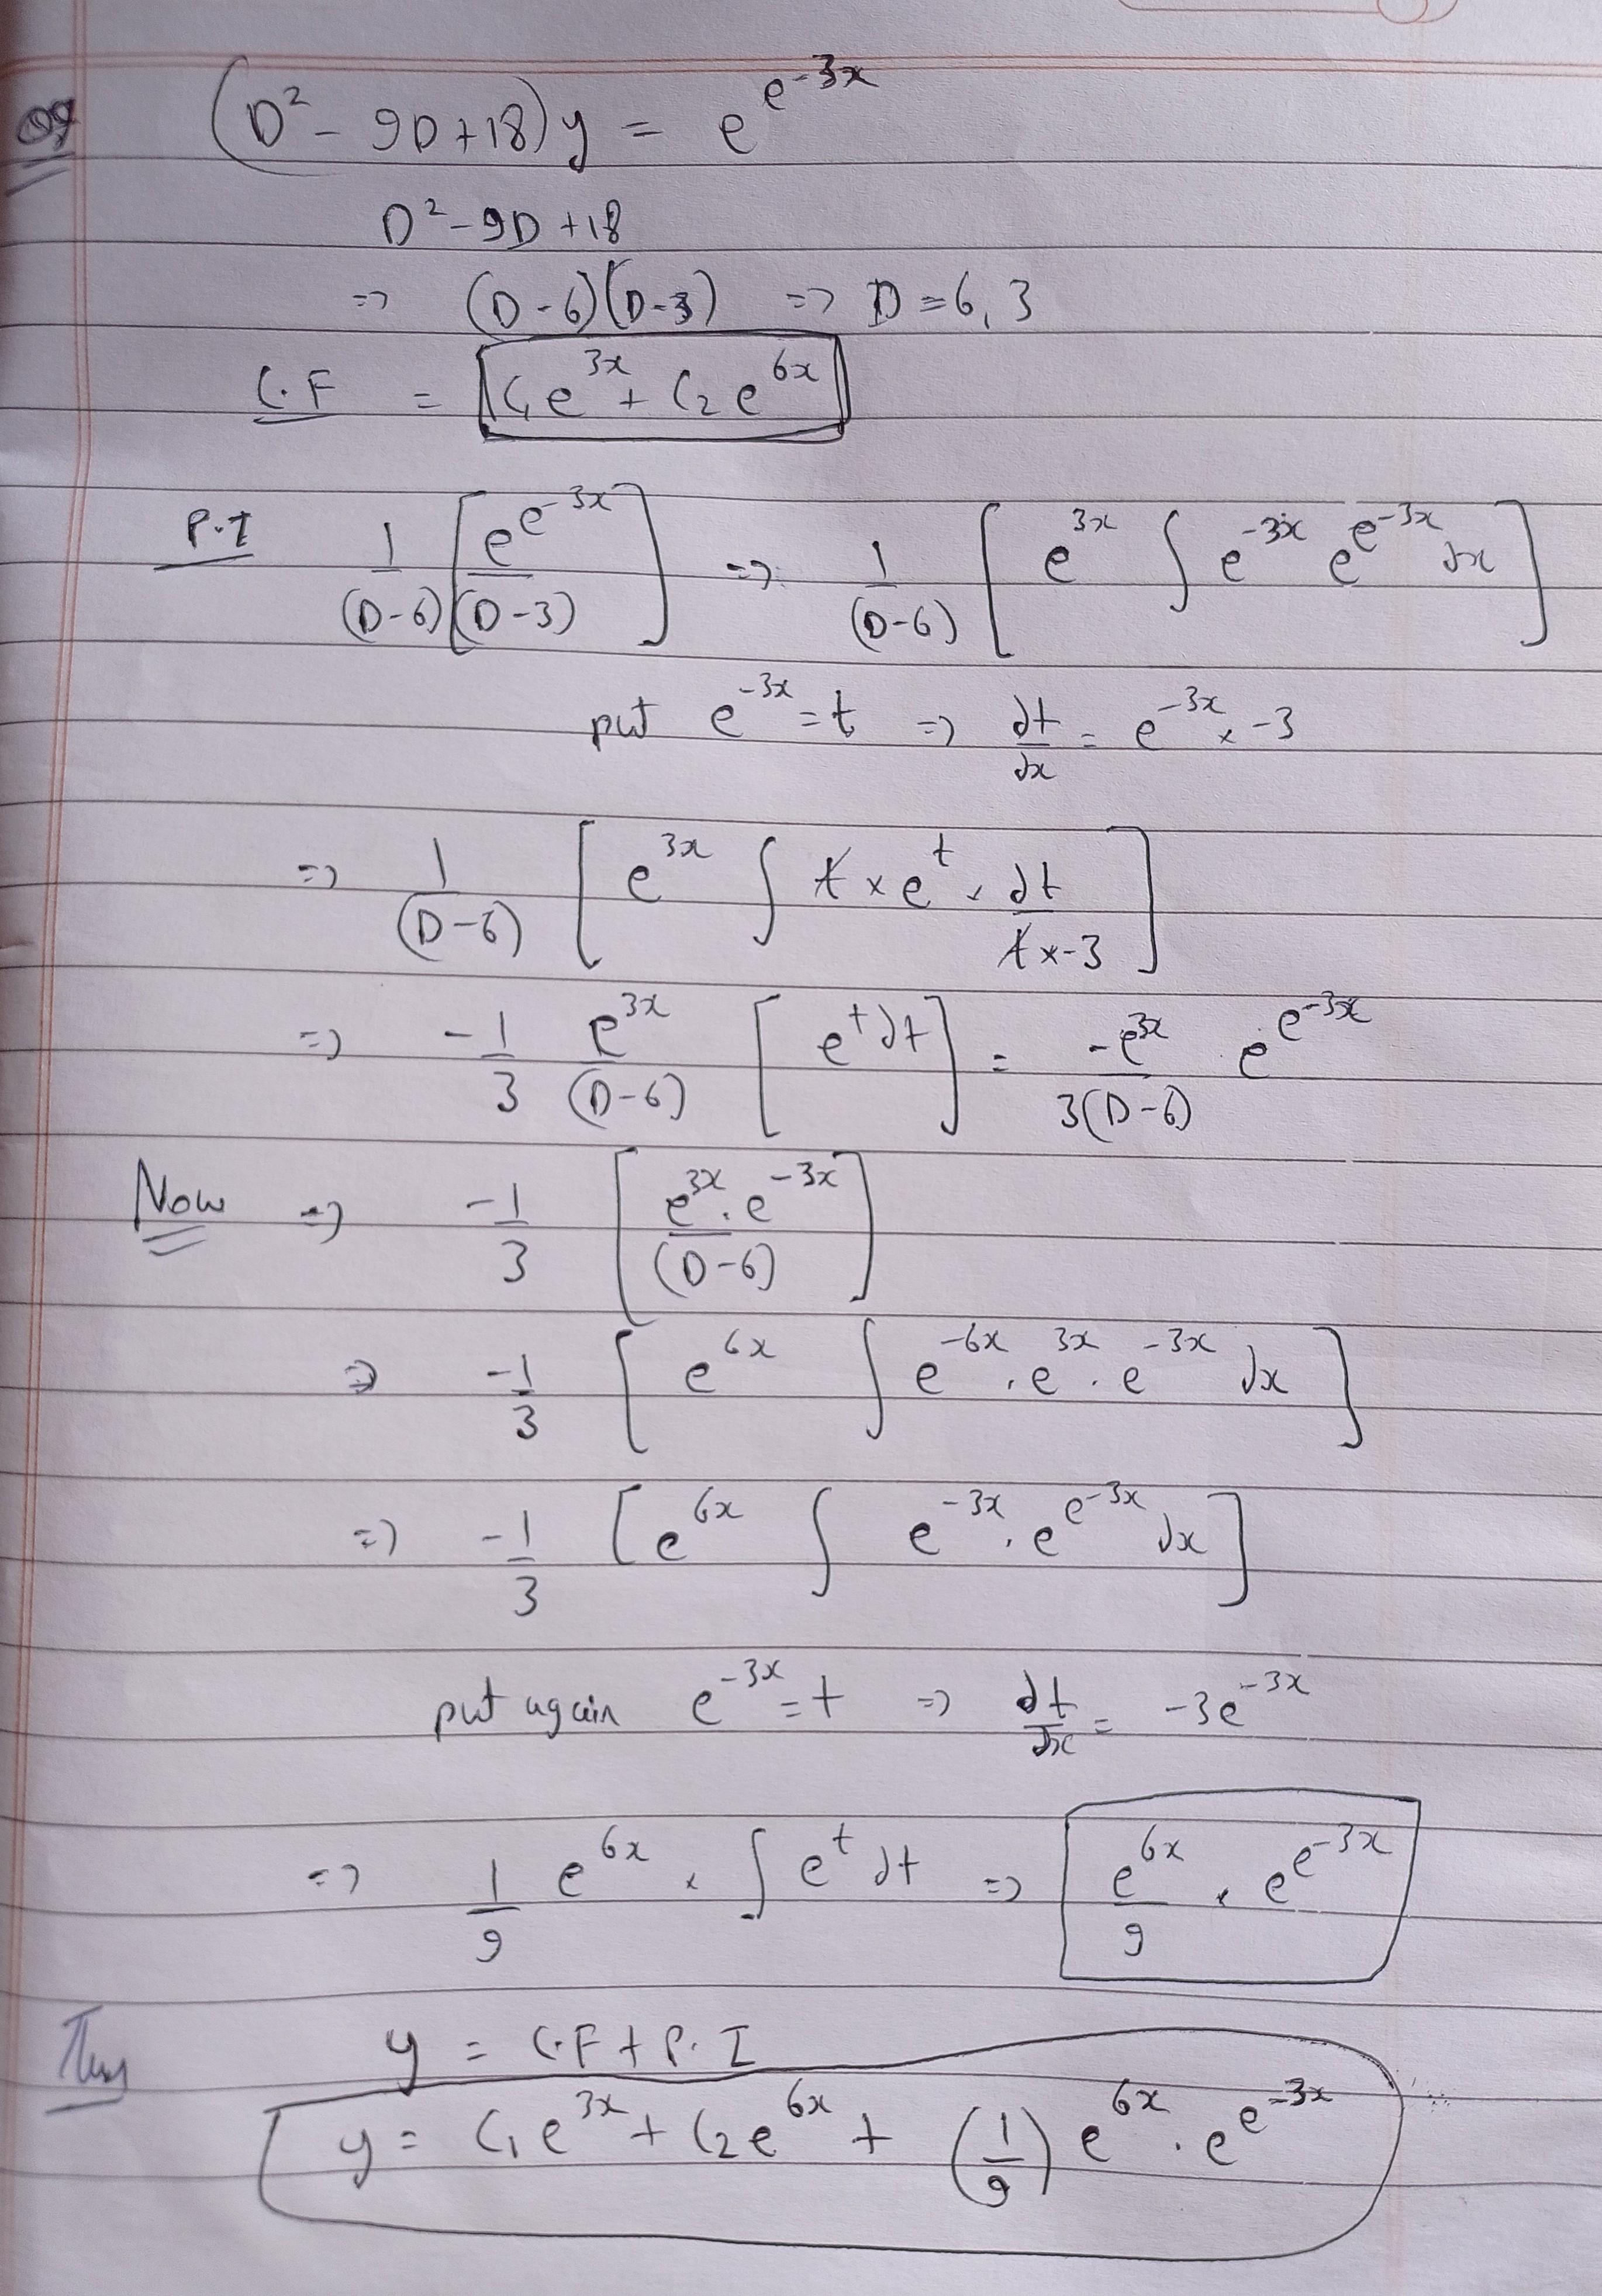 Q9 (D² - 9D + 18)y = e^{e^{-3x}}
D² - 9D + 18
=> (D-6)(D-3) => D = 6, 3
C.F = C₁e^{3x} + C₂e^{6x}
P.I 1/(D-6) [e^{e^{-3x}}/(D-3)] => 1/(D-6) [e^{3x} ∫ e^{-3x} e^{e^{-3x}} dx]
put e^{-3x} = t => dt/dx = e^{-3x} × -3
=> 1/(D-6) [e^{3x} ∫ t × e^t × dt/(t × -3)]
=> -1/3 e^{3x}/(D-6) [e^t dt] = -e^{3x}/3(D-6) e^{e^{-3x}}
Now => -1/3 [e^{3x} . e^{-3x}/(D-6)]
=> -1/3 [e^{6x} ∫ e^{-6x} . e^{3x} . e^{-3x} dx]
=> -1/3 [e^{6x} ∫ e^{-3x} . e^{e^{-3x}} dx]
put again e^{-3x} = t => dt/dx = -3e^{-3x}
=> 1/9 e^{6x} × ∫ e^t dt => e^{6x}/9 . e^{e^{-3x}}
Thus y = C.F + P.I
y = C₁e^{3x} + C₂e^{6x} + (1/9) e^{6x} . e^{e^{-3x}}